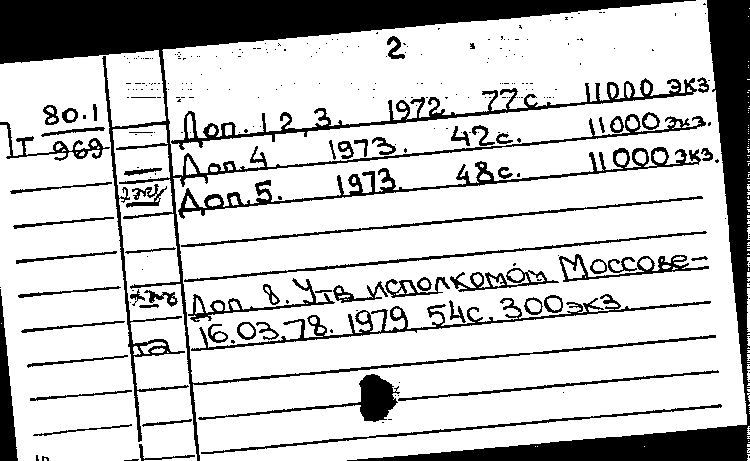 2
80.1
Доп. 1, 2, 3. 1972. 77с. 11000 экз.
Т 969
Доп. 4. 1973. 42с. 11000 экз.
2 экз
Доп. 5. 1973. 48с. 11000 экз.
Доп. 8. Утв исполкомом Моссове-
та
16.03.78. 1979 54с. 300 экз.